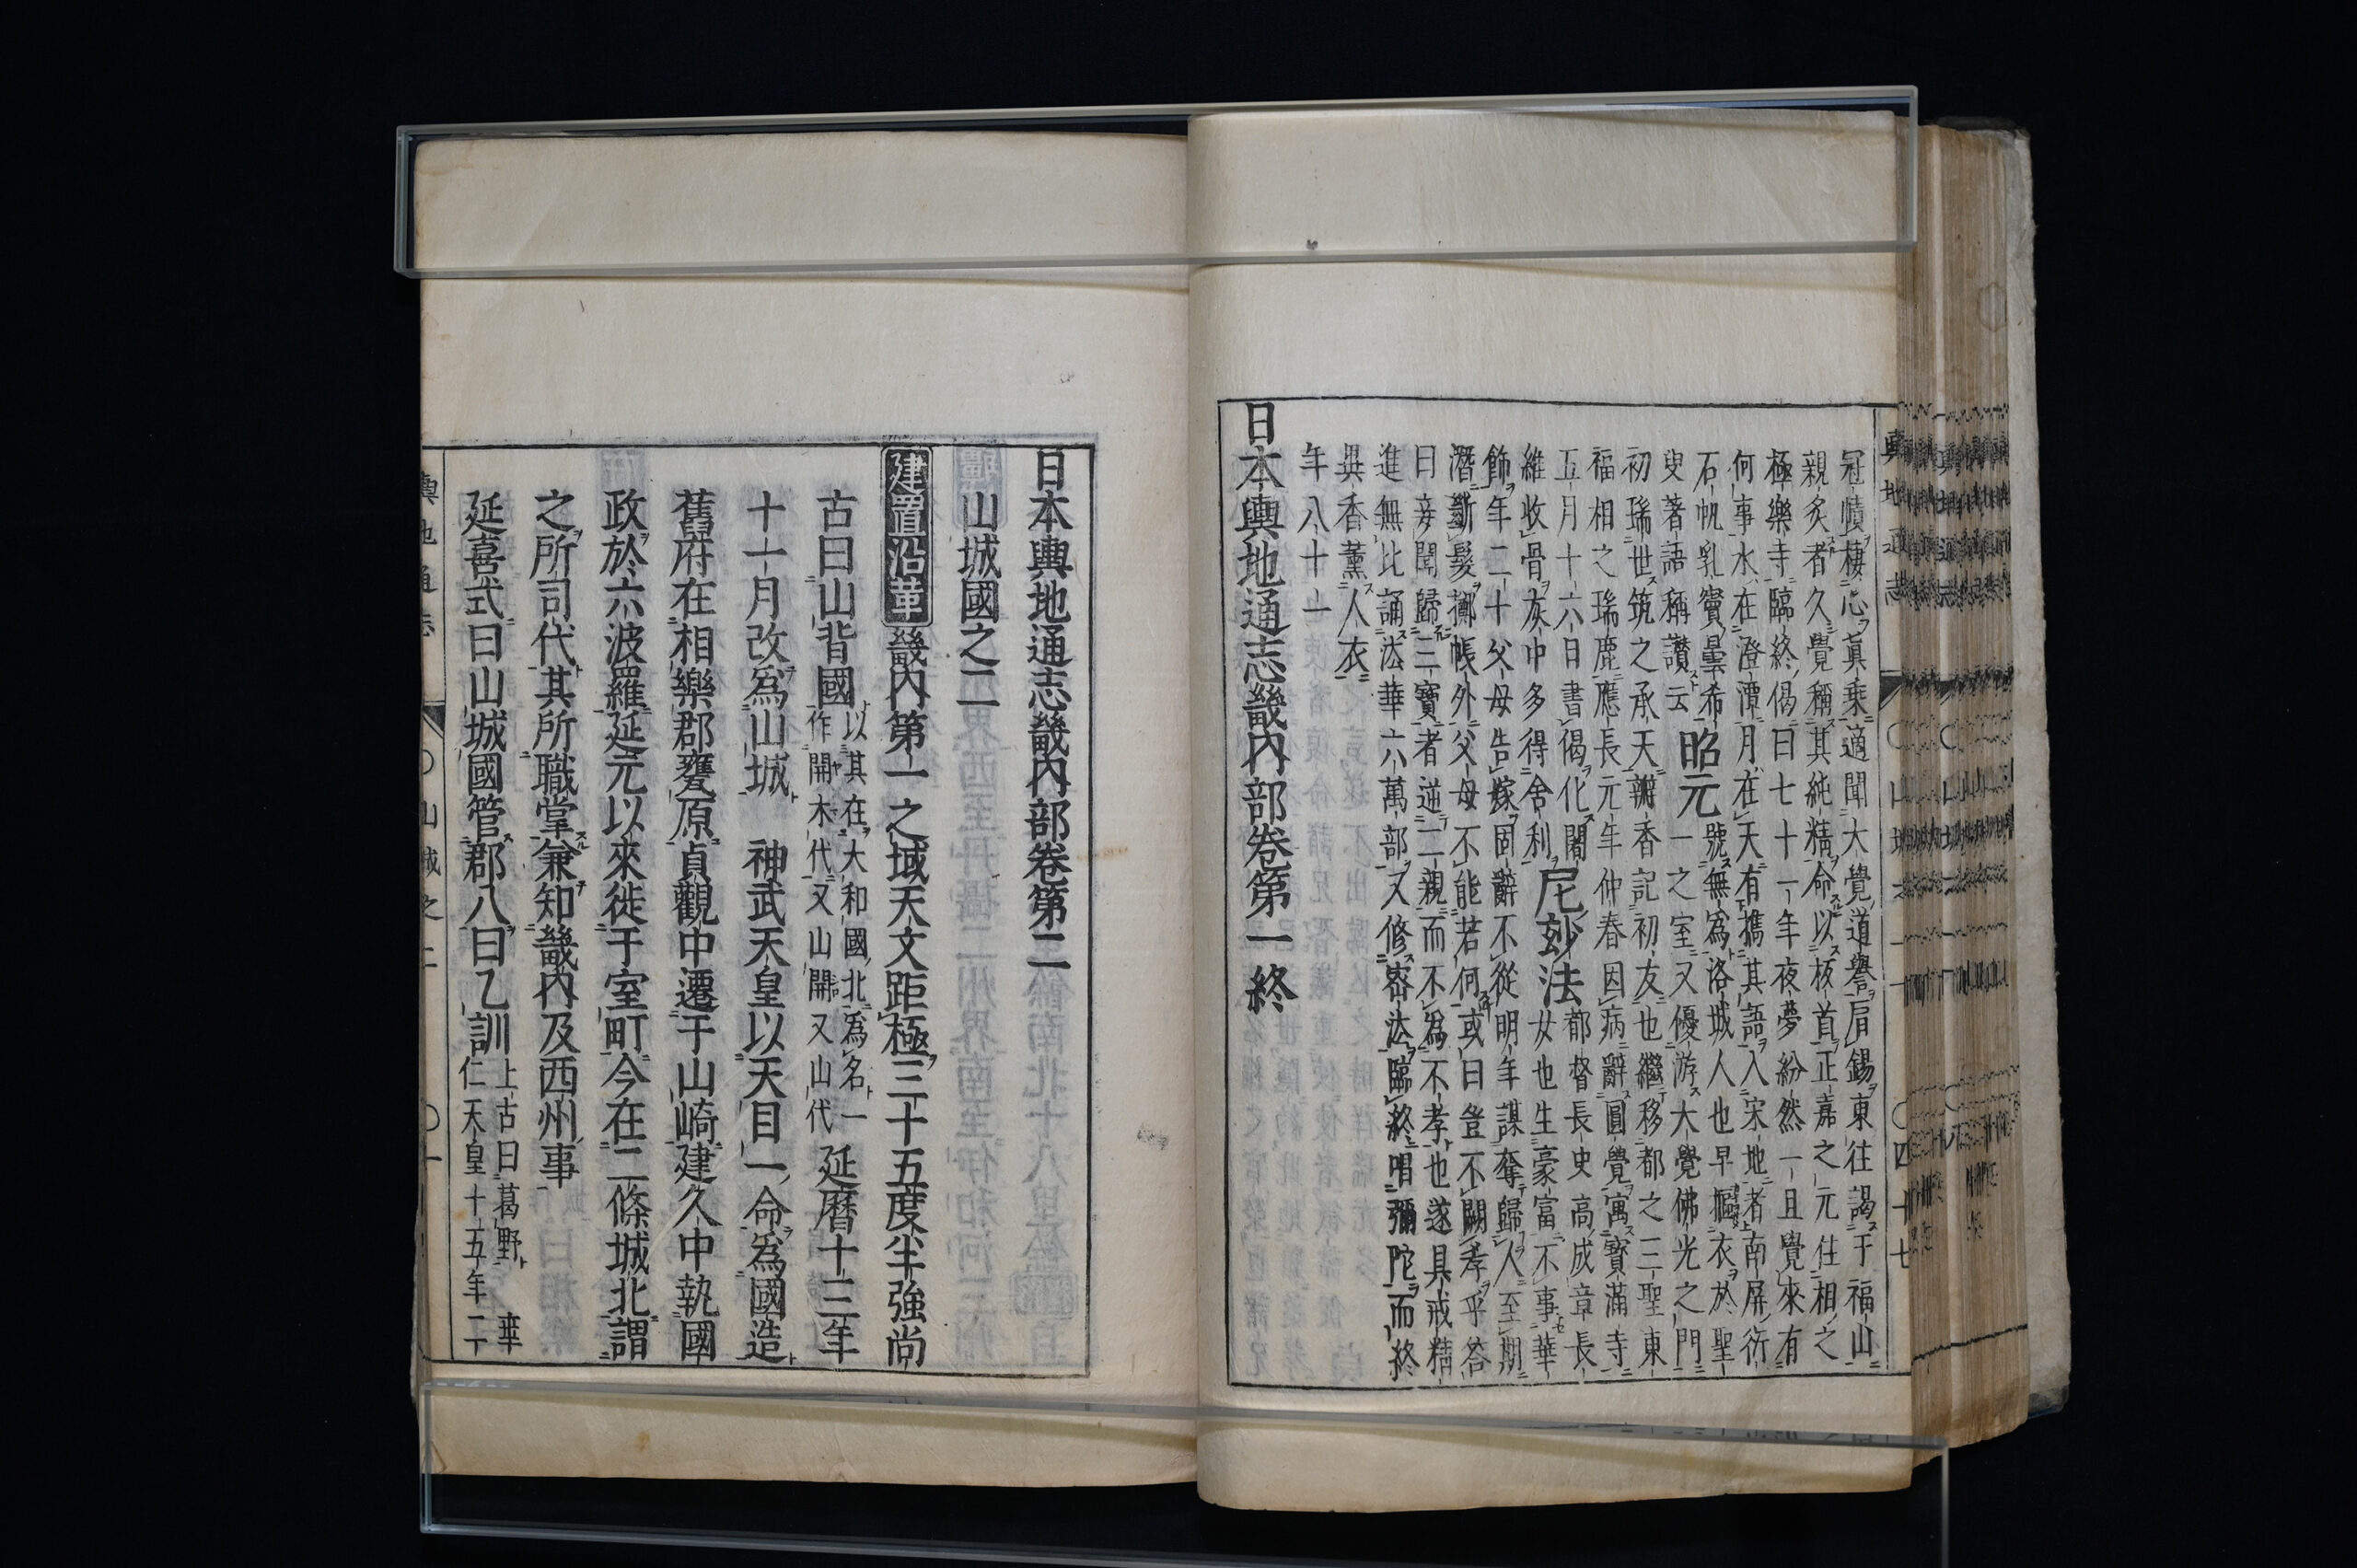 冠幘棲心眞乗適聞大覺道譽肩錫東往謁于福山
親炙者久覺稱其純精命以板首正嘉之元住相之
極樂寺臨終偈曰七十一年夜夢紛然一且覺來有
何事水在澄潭月在天有攜其語入宋地者南屏衍
石帆乳竇曇希號無爲洛城人也早摳衣於聖
叟著語稱讃云昭元一之室又優游大覺佛光之門
初瑞世筑之承天瓣香記初友也繼移都之三聖東
福相之瑞鹿應長元年仲春因病辭圓覺寓寶滿寺
五月十六日書偈化闍
維收骨灰中多得舍利尼玅法都督長史高成章長
女也生豪富不事華
飾年二十父母告嫁固辭不從明年謀奪歸人至期
潛斷髮擲帳外父母不能若何或曰豈不闕孝乎答
曰妾聞歸三寶者逆二親而不爲不孝也遂具戒精
進無比誦法華六萬部又修密法臨終唱彌陀而終
異香薰人衣
年八十一
日本輿地通志畿内部卷第一終
輿地通志 〇山城之一 〇四十七
日本輿地通志畿内部卷第二
山城國之二
建置沿革 畿内第一之域天文距極三十五度半強尚
古曰山背國以其在大和國北爲名一
作開木代又山開又山代延暦十三年
十一月改爲山城 神武天皇以天目一命爲國造
舊府在相樂郡甕原貞觀中遷于山崎建久中執國
政於六波羅延元以來徙于室町今在二條城北謂
之所司代其所職掌兼知畿内及西州事
延喜式曰山城國管郡八曰乙訓上古曰葛野
仁天皇十五年